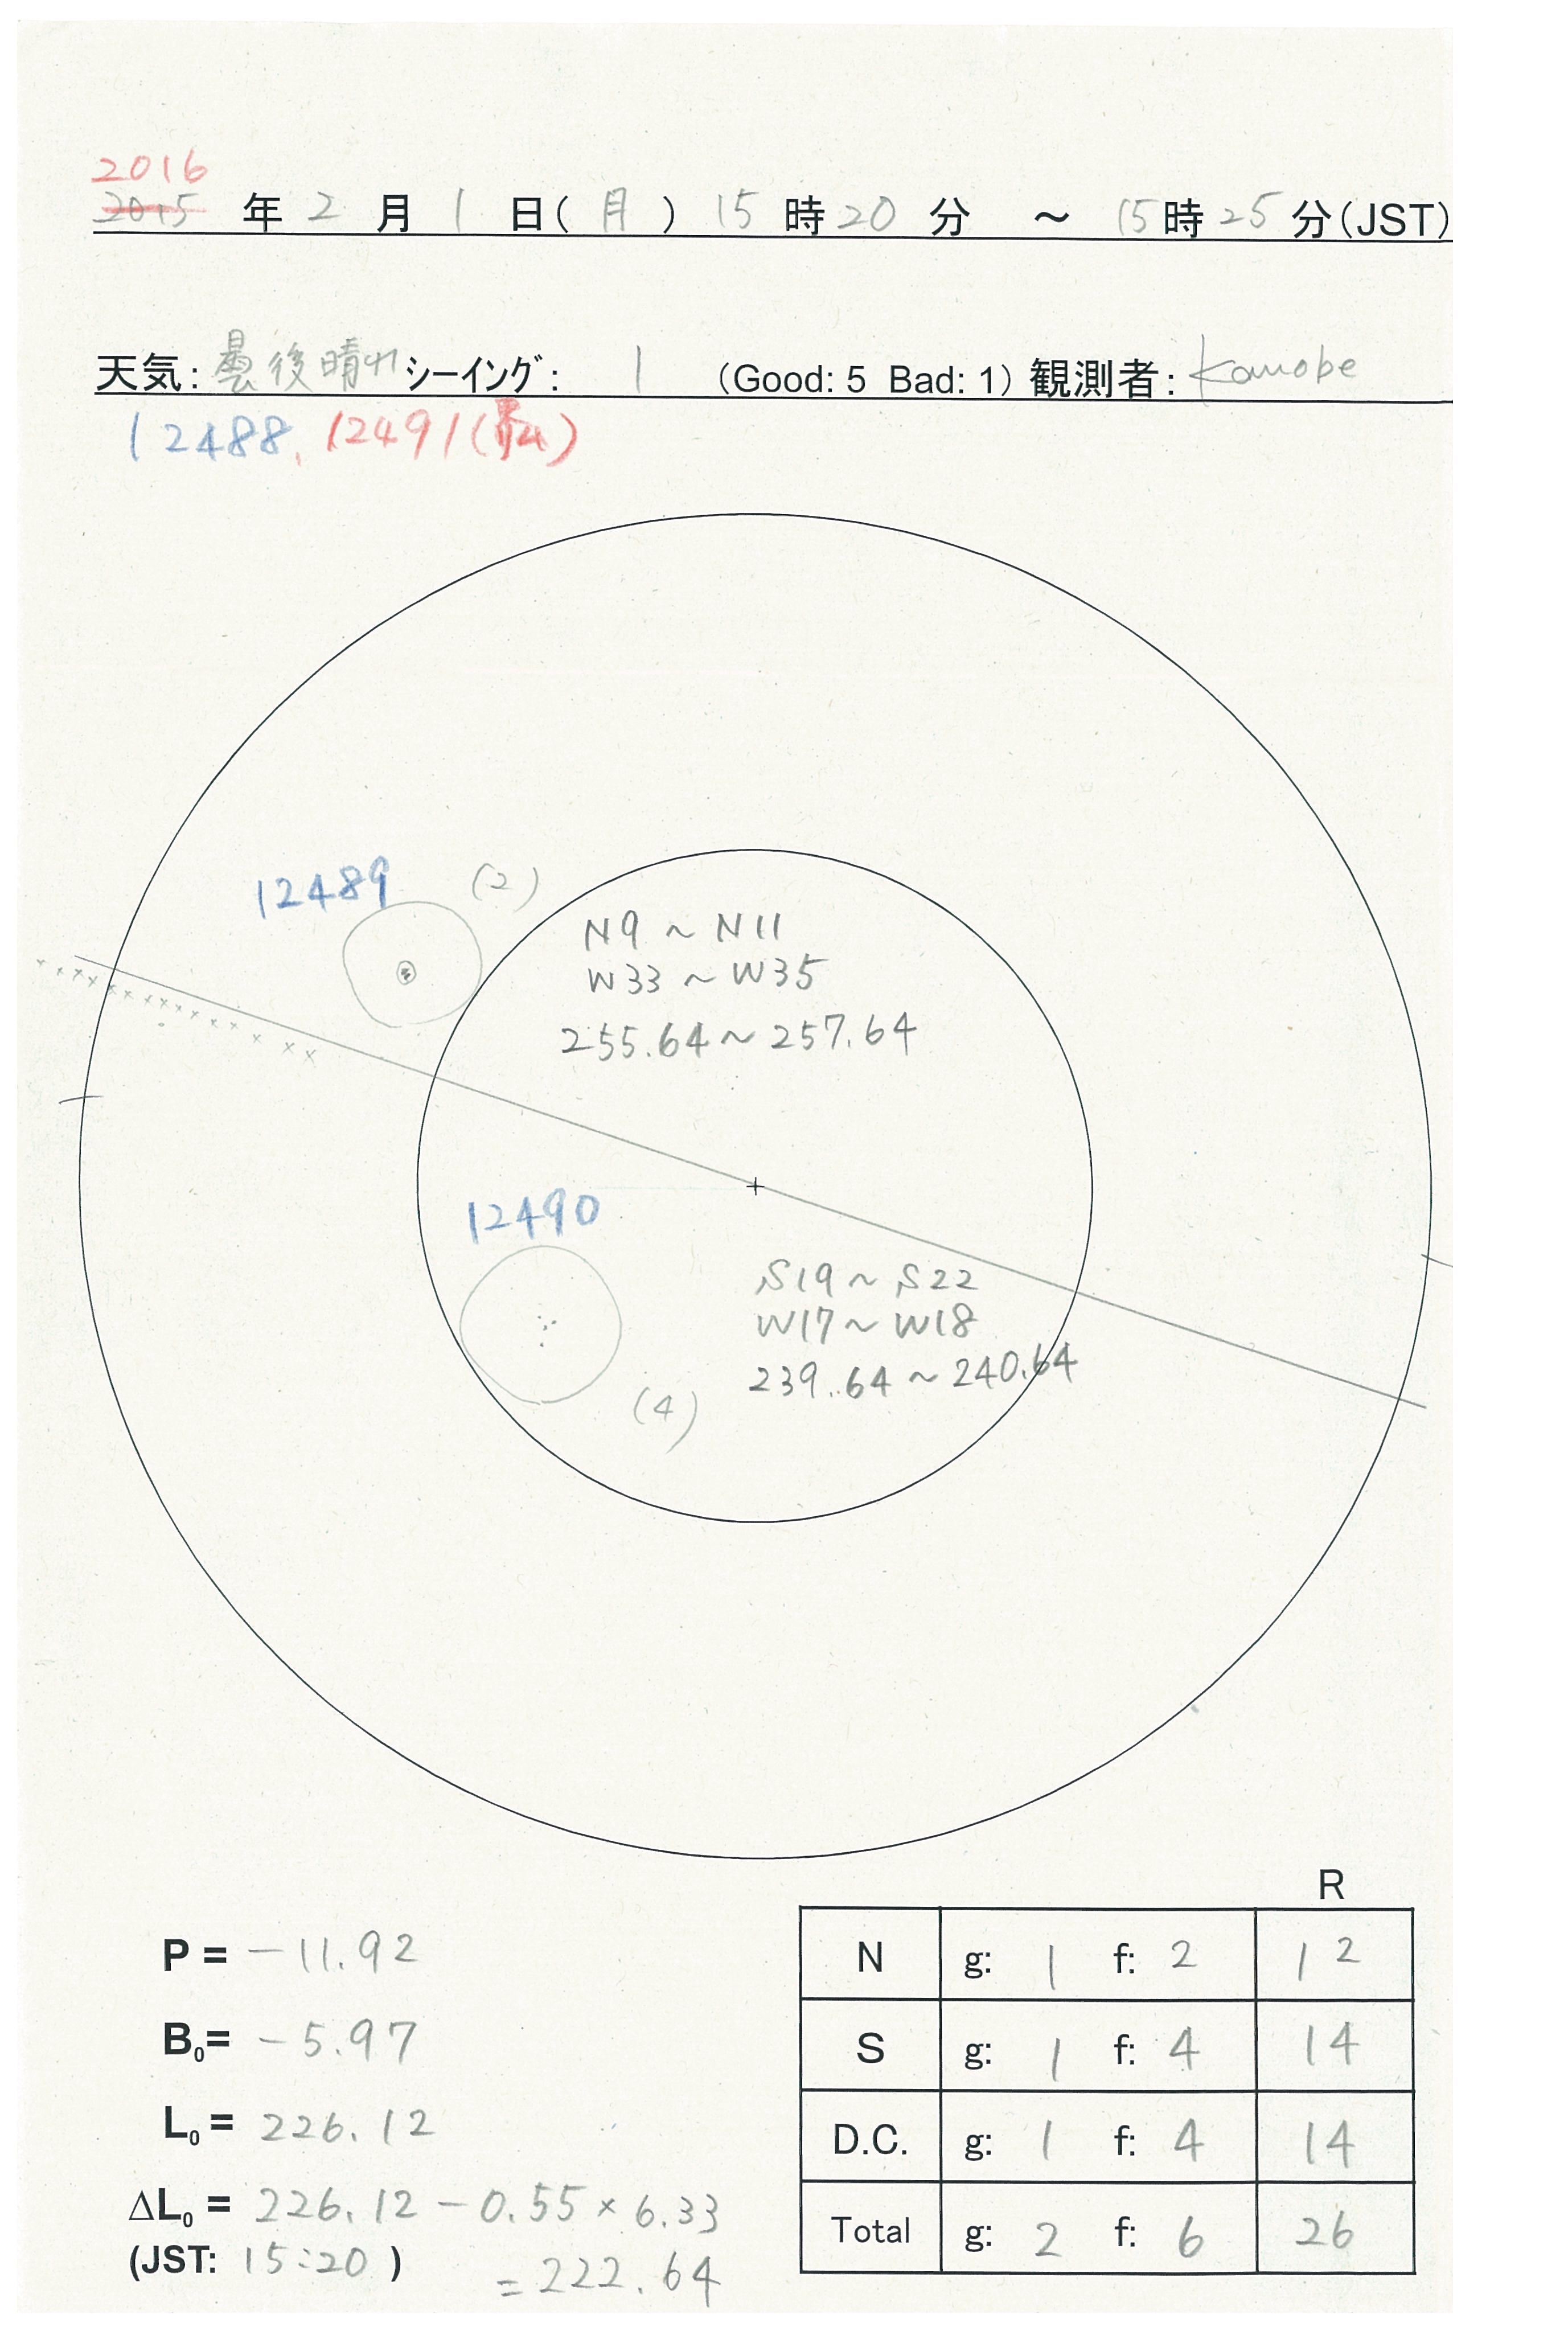 2016
2015 年 2 月 1 日(月) 15 時 20 分 ～ 15 時 25 分(JST)
天気: 曇後晴れ シーイング: 1 (Good: 5 Bad: 1) 観測者: Kamobe
12488, 12491
12489 (2)
N9 ~ N11
W33 ~ W35
255.64 ~ 257.64
12490
S19 ~ S22
W17 ~ W18
239.64 ~ 240.64
(4)
P = -11.92
B0= -5.97
L0 = 226.12
ΔL0 = 226.12 - 0.55 × 6.33
(JST: 15:20 ) = 222.64
R
N g: 1 f: 2 12
S g: 1 f: 4 14
D.C. g: 1 f: 4 14
Total g: 2 f: 6 26